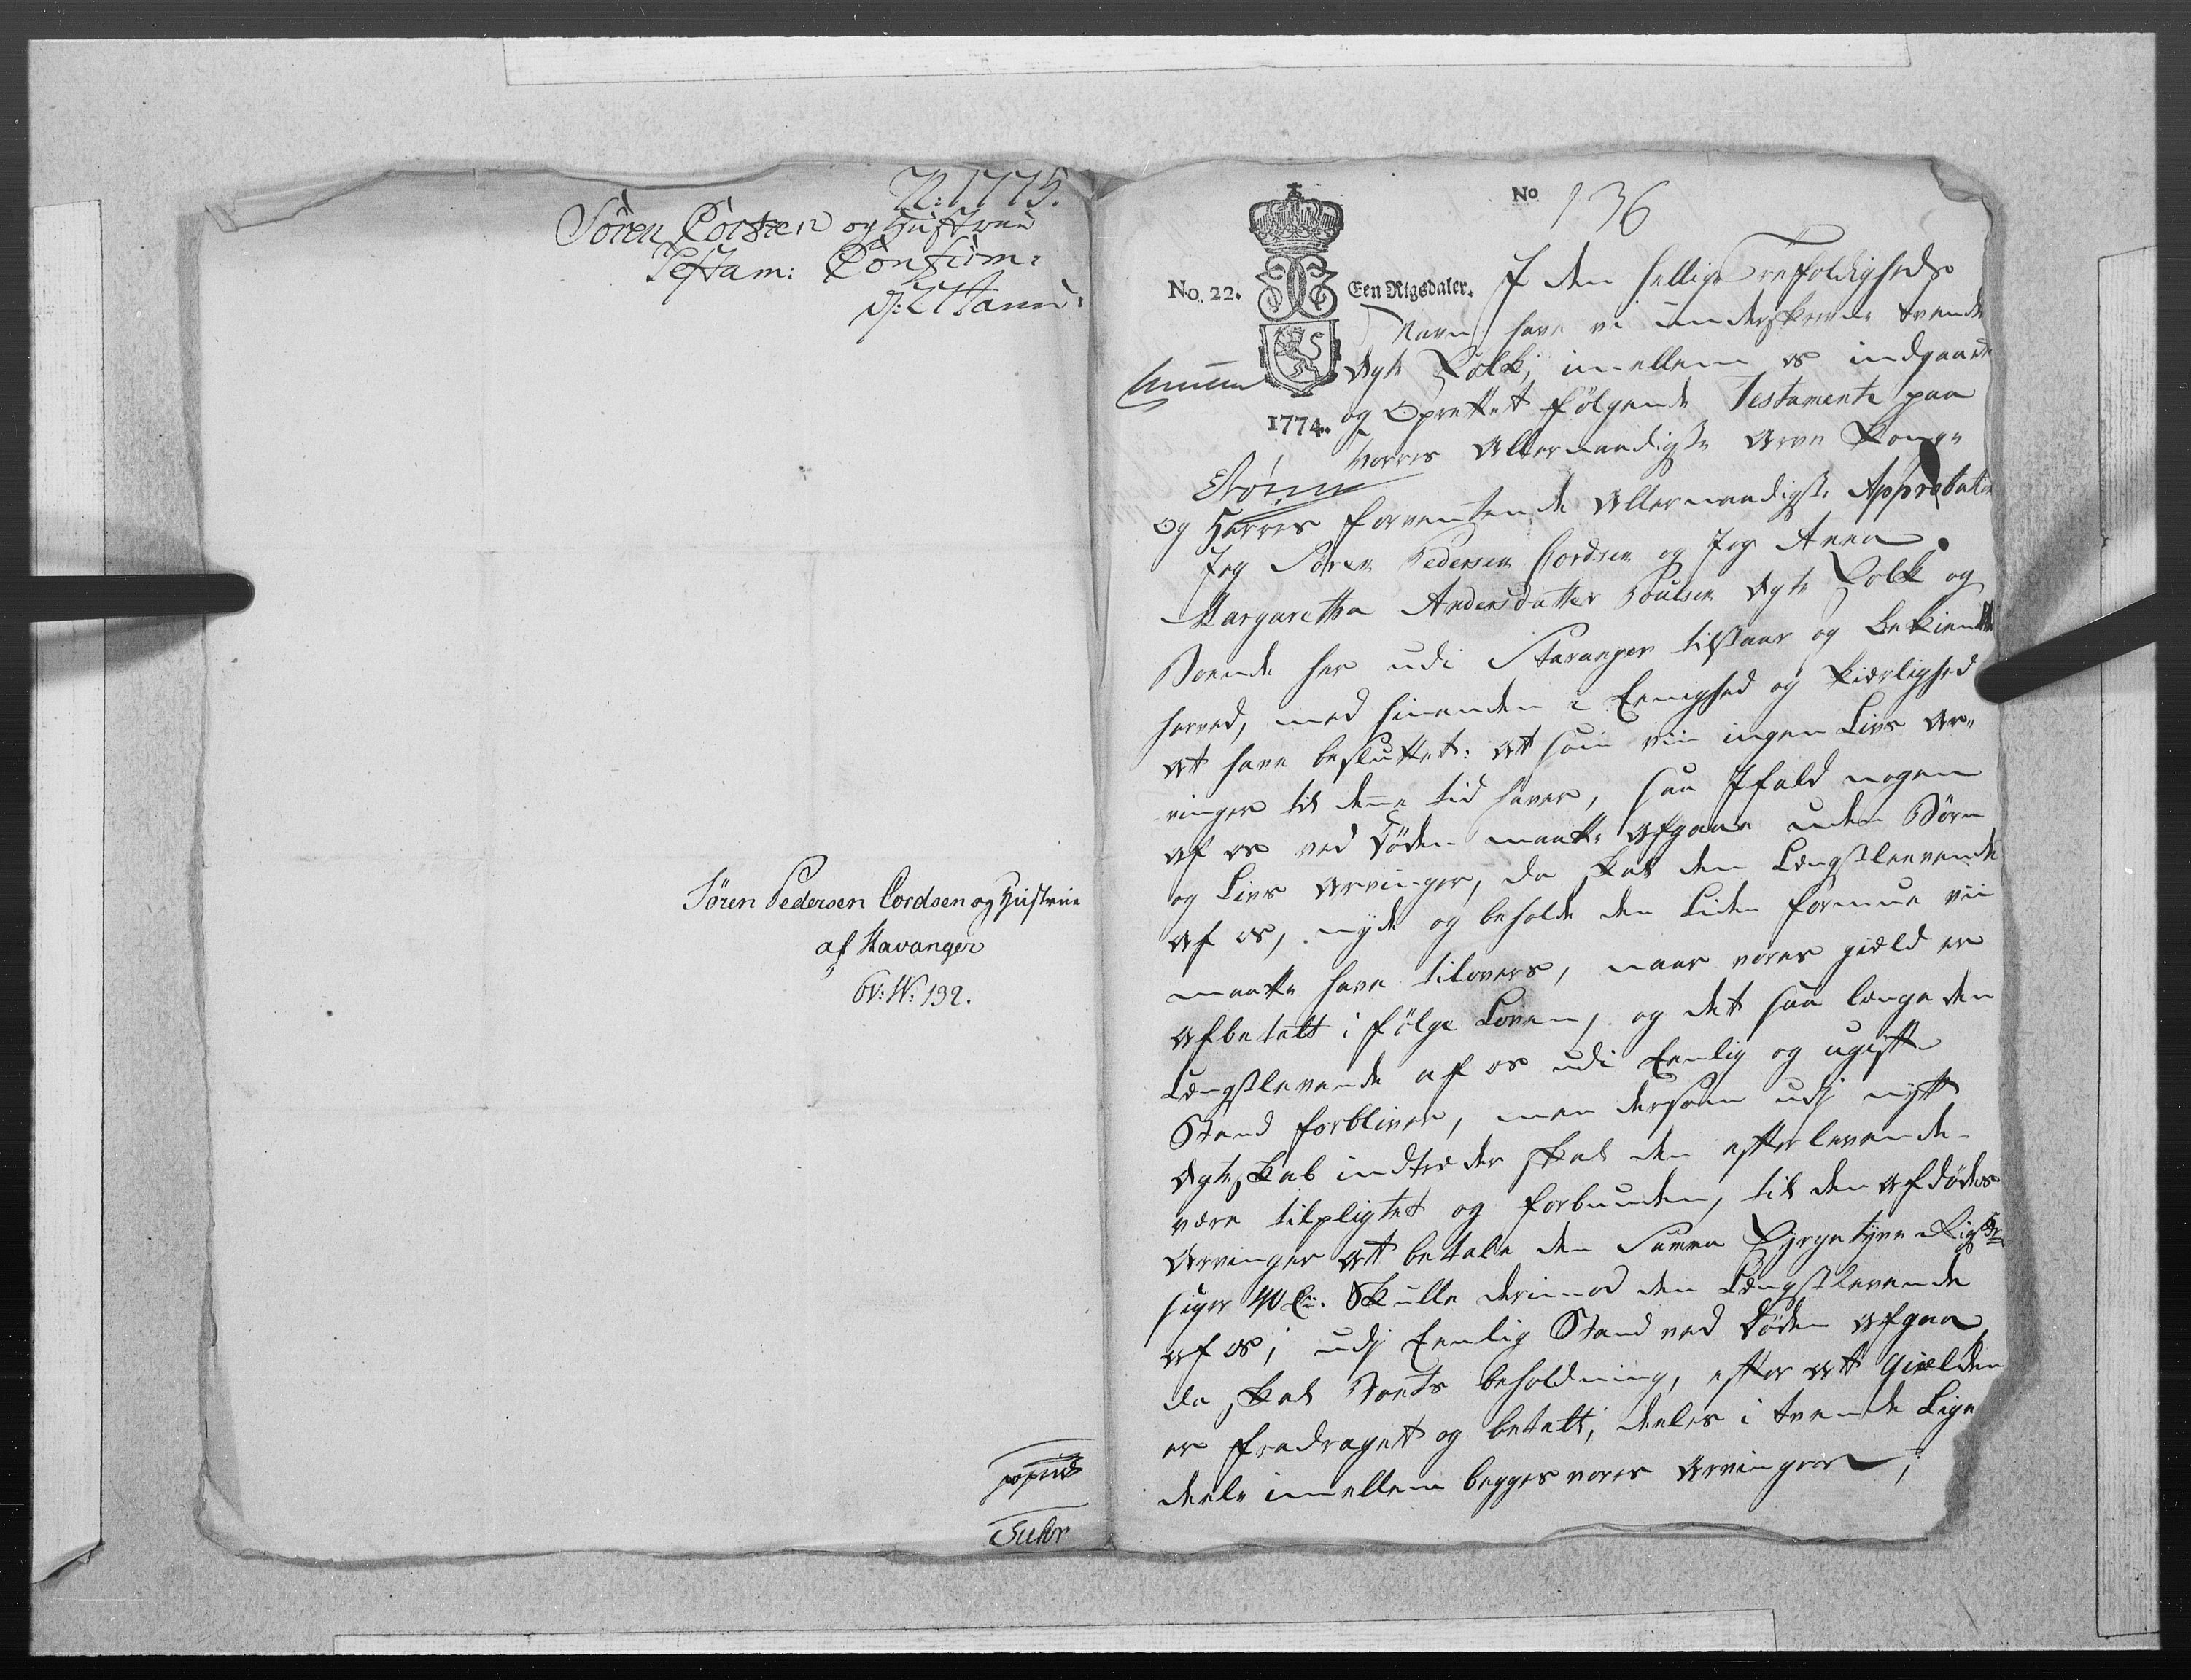 N: 1775.
Sören Cortsen og Hustrue
Testam: Confirm:
d: 27 Janu:
Sören Pedersen Cordsen og Hustrue
af Stavanger
Br: N: 132.
Suhr
No 136
No. 22. Een Rigsdaler.
1774.
I den hellige Trefoldigheds
Navn have vi underskrevne tvende
Ægte Folk, imellem os indgaaet
og Oprettet følgende Testamente paa
vorres Allernaadigste Arve Konge
og Herres forventende Allernaadigste Approbation
Jeg Sören Pedersen Cordsen og Jeg Anna
Margaretha Andersdatter Poulsen Ægte Folk og
Boende her udi Stavanger tilstaar og bekiender
herved, med hinanden i Eenighed og Kierlighed
at have besluttet: at som vii ingen Livs Ar„
vinger til denne tid haver, saa Ifald nogen
af os ved Døden maatte afgaae uden Børn
og Livs Arvinger, da skal den Længstlevende
af os, nyde og beholde den Liden formue vii
maatte have tilovers, naar vores gield er
afbetalt i følge Loven, og det saa længe den
Længstlevende af os udi Eenlig og ugift
Stand forbliver, men dersom udj nytt
Ægteskab indtræder skal den efterlevende
være tilpligtet og forbunden, til den afdødes
Arvinger at betale den Summa Fyrgetyve Rigsdr
siger 40 Rd. Skulle derimod den Længstlevende
af os, udj Eenlig Stand ved Døden afgaa
da skal Boets beholdning, efter at Gielden
er fradraget og betalt, deeles i tvende Lige
deele imellem begges vores Arvinger,